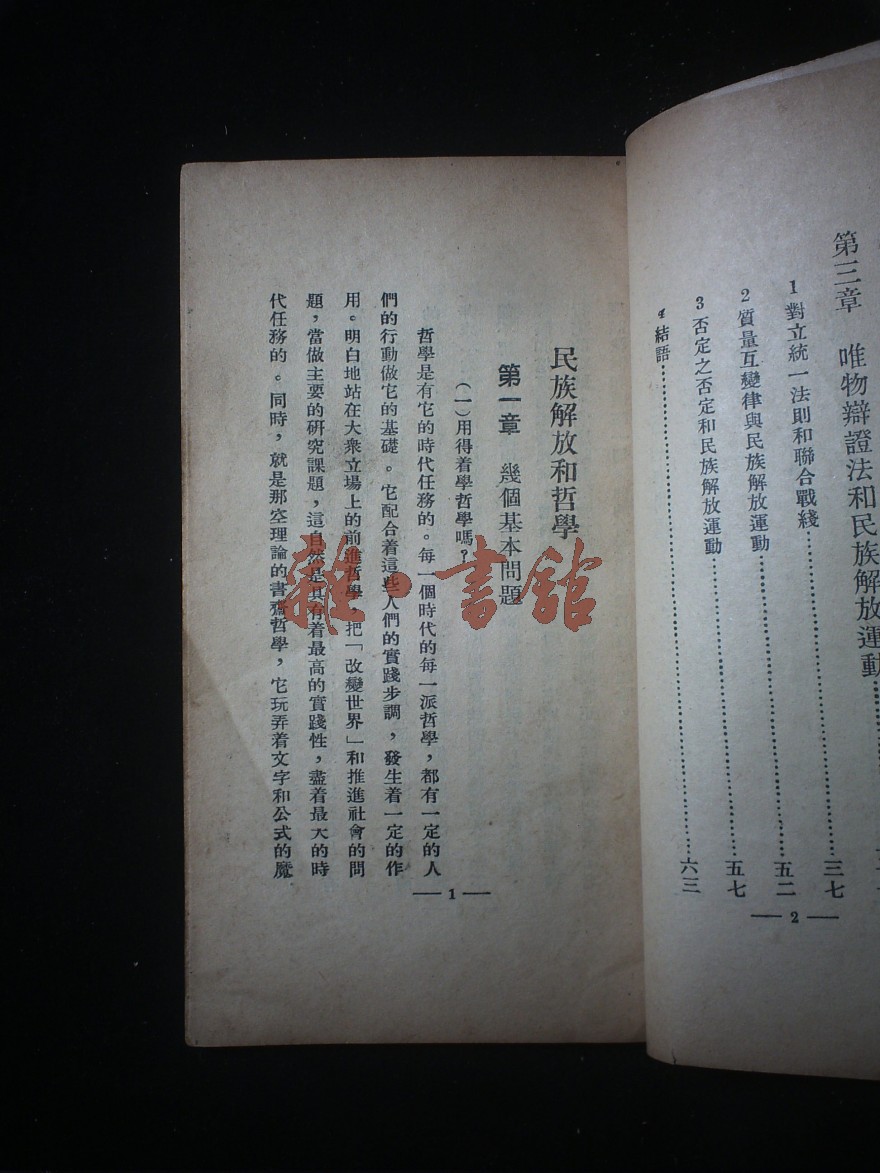 第三章　唯物辯證法和民族解放運動
1 對立統一法則和聯合戰綫……三七
2 質量互變律與民族解放運動……五二
3 否定之否定和民族解放運動……五七
4 結語……六三
— 2 —
民族解放和哲學
第一章　幾個基本問題
(一)用得着學哲學嗎?
哲學是有它的時代任務的。每一個時代的每一派哲學，都有一定的人
們的行動做它的基礎。它配合着這些人們的實踐步調，發生着一定的作
用。明白地站在大衆立場上的前進哲學，把「改變世界」和推進社會的問
題，當做主要的研究課題，這自然是具有着最高的實踐性，盡着最大的時
代任務的。同時，就是那空理論的書齋哲學，它玩弄着文字和公式的魔
— 1 —
雜·書館